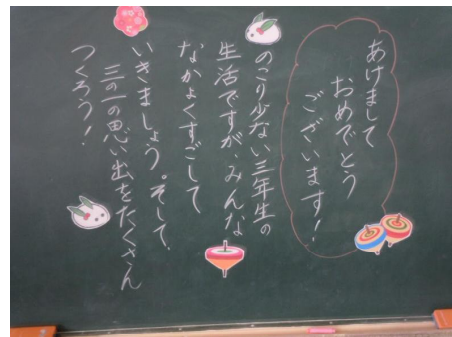 あけまして
おめでとう
ございます!
のこり少ない三年生の
生活ですが、みんな
なかよくすごして
いきましょう。そして、
三の一の思い出をたくさん
つくろう!